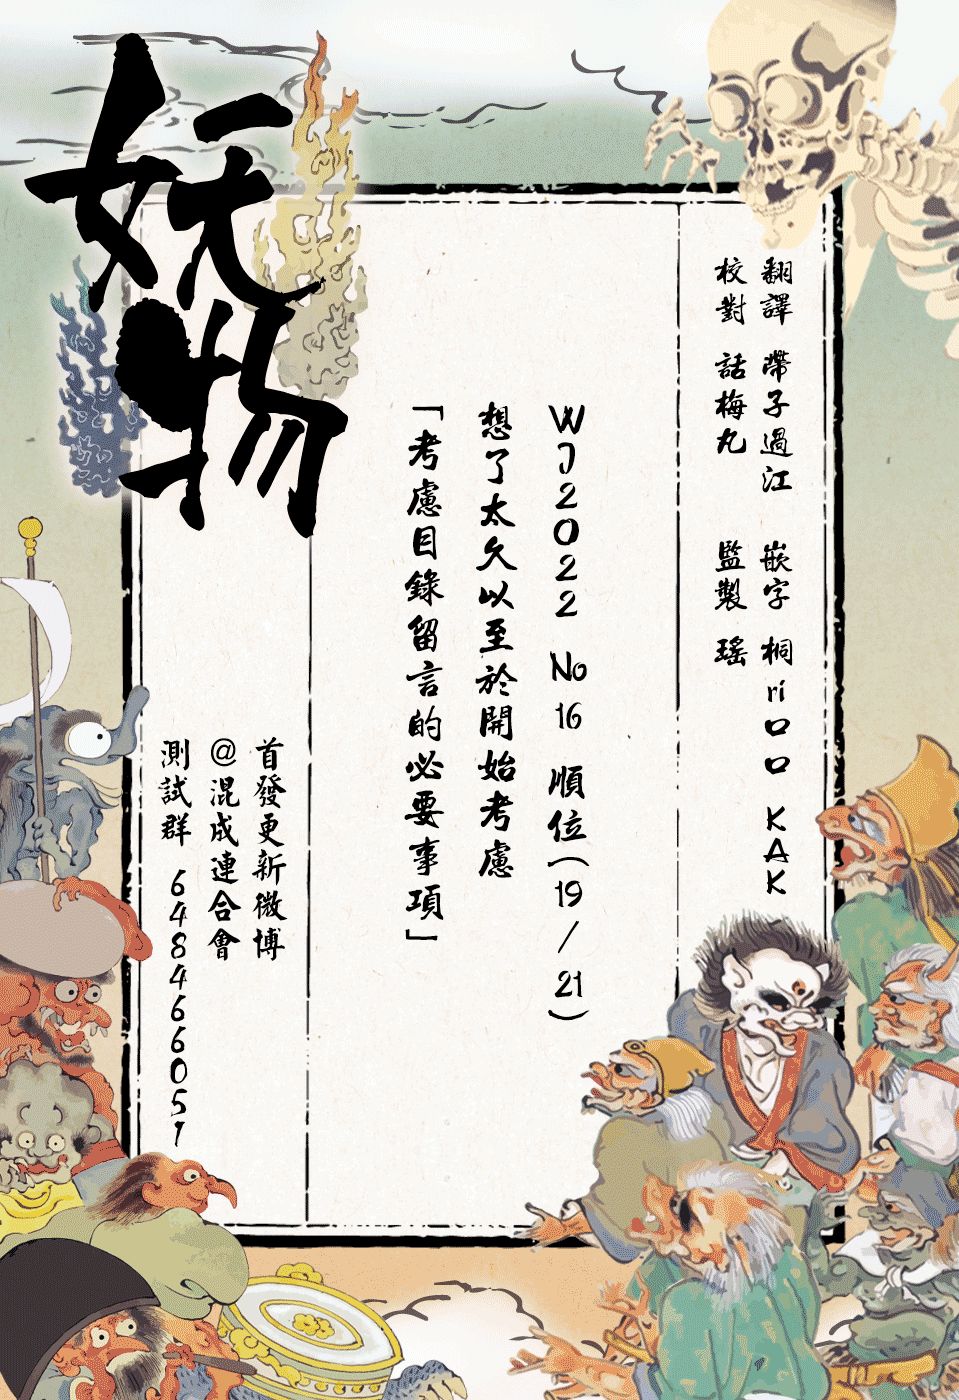 妖物
翻譯 帶子過江 嵌字 桐ri口口 KAK
校對 話梅丸 監製 瑤
WJ2022 No 16 順位(19/21)
想了太久以至於開始考慮
「考慮目錄留言的必要事項」
首發更新微博
@混成連合會
測試群 648466051